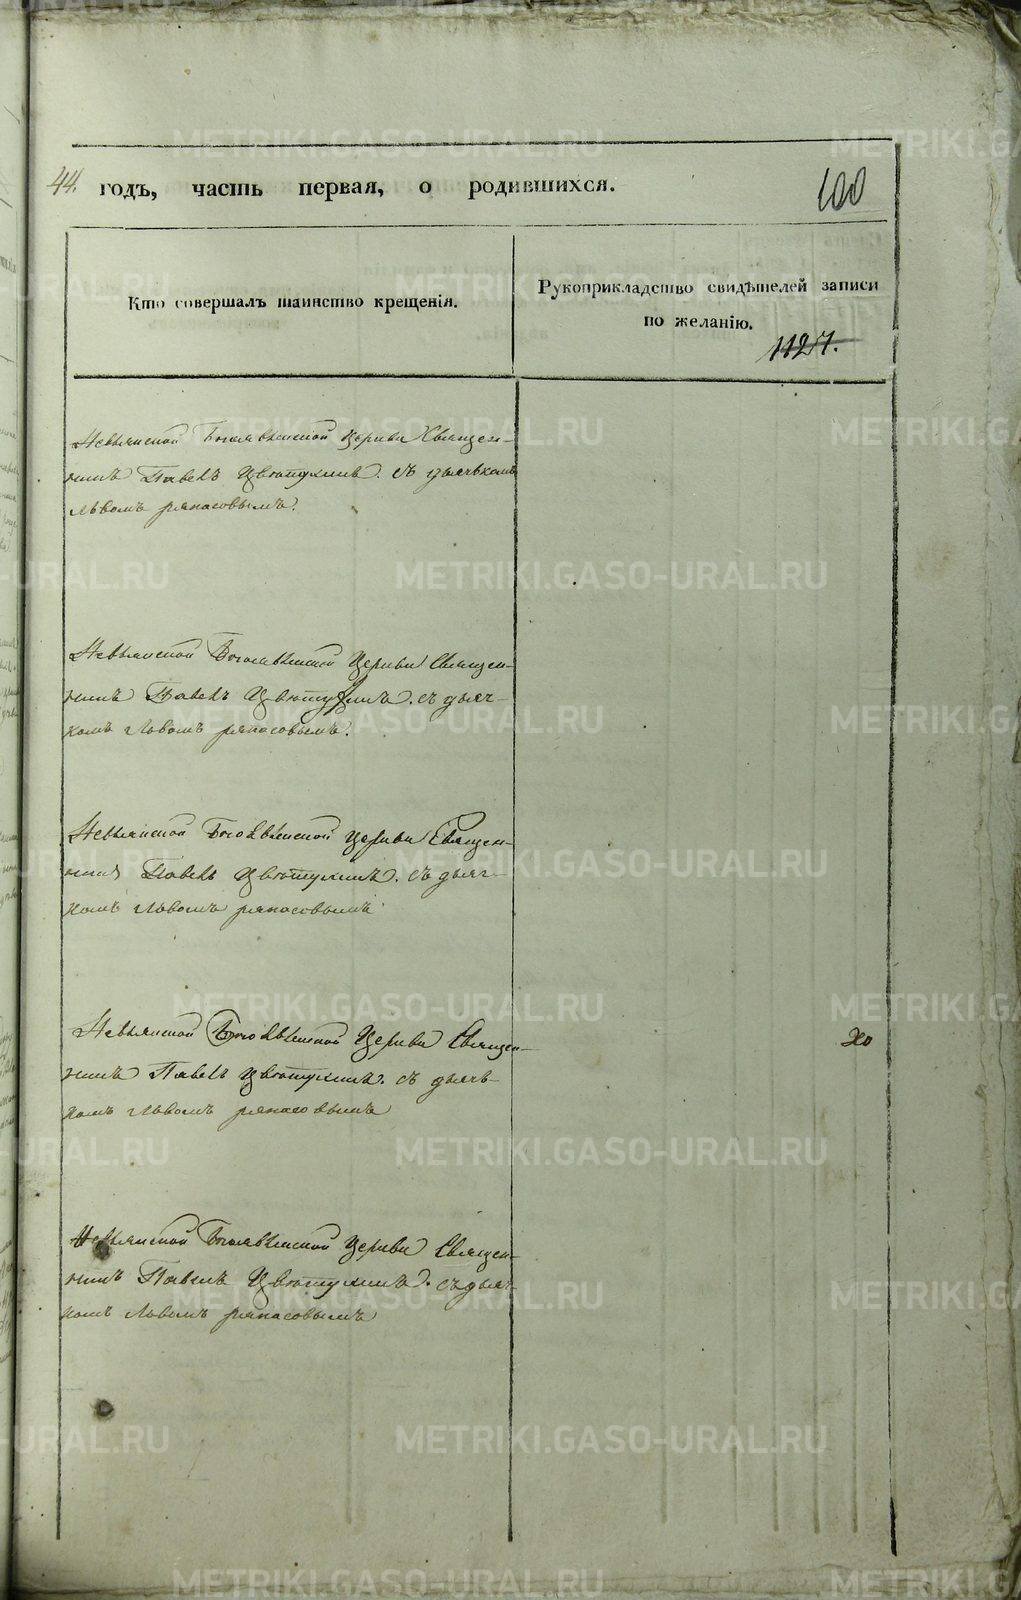 44. годъ, часть первая, о родившихся.
100
Кто совершалъ таинство крещенія.
Рукоприкладство свидѣтелей записи
по желанію.
1127.
Невьянской Богоявленской церкви Священ-
никъ Павелъ съ дьячькомъ
Львомъ ряпасовымъ.
Невьянской Богоявленской Церкви Священ-
никъ Павелъ съ дьяч-
комъ Львомъ ряпасовымъ.
Невьянской Богоявленской Церкви Священ-
никъ Павелъ съ дьяч-
комъ Львомъ ряпасовымъ
Невьянской Богоявленской Церкви Священ-
никъ Павелъ съ дьячь-
комъ Львомъ ряпасовымъ
Невьянской Богоявленской Церкви Священ-
никъ Павелъ съ дьяч-
комъ Львомъ ряпасовымъ
METRIKI.GASO-URAL.RU